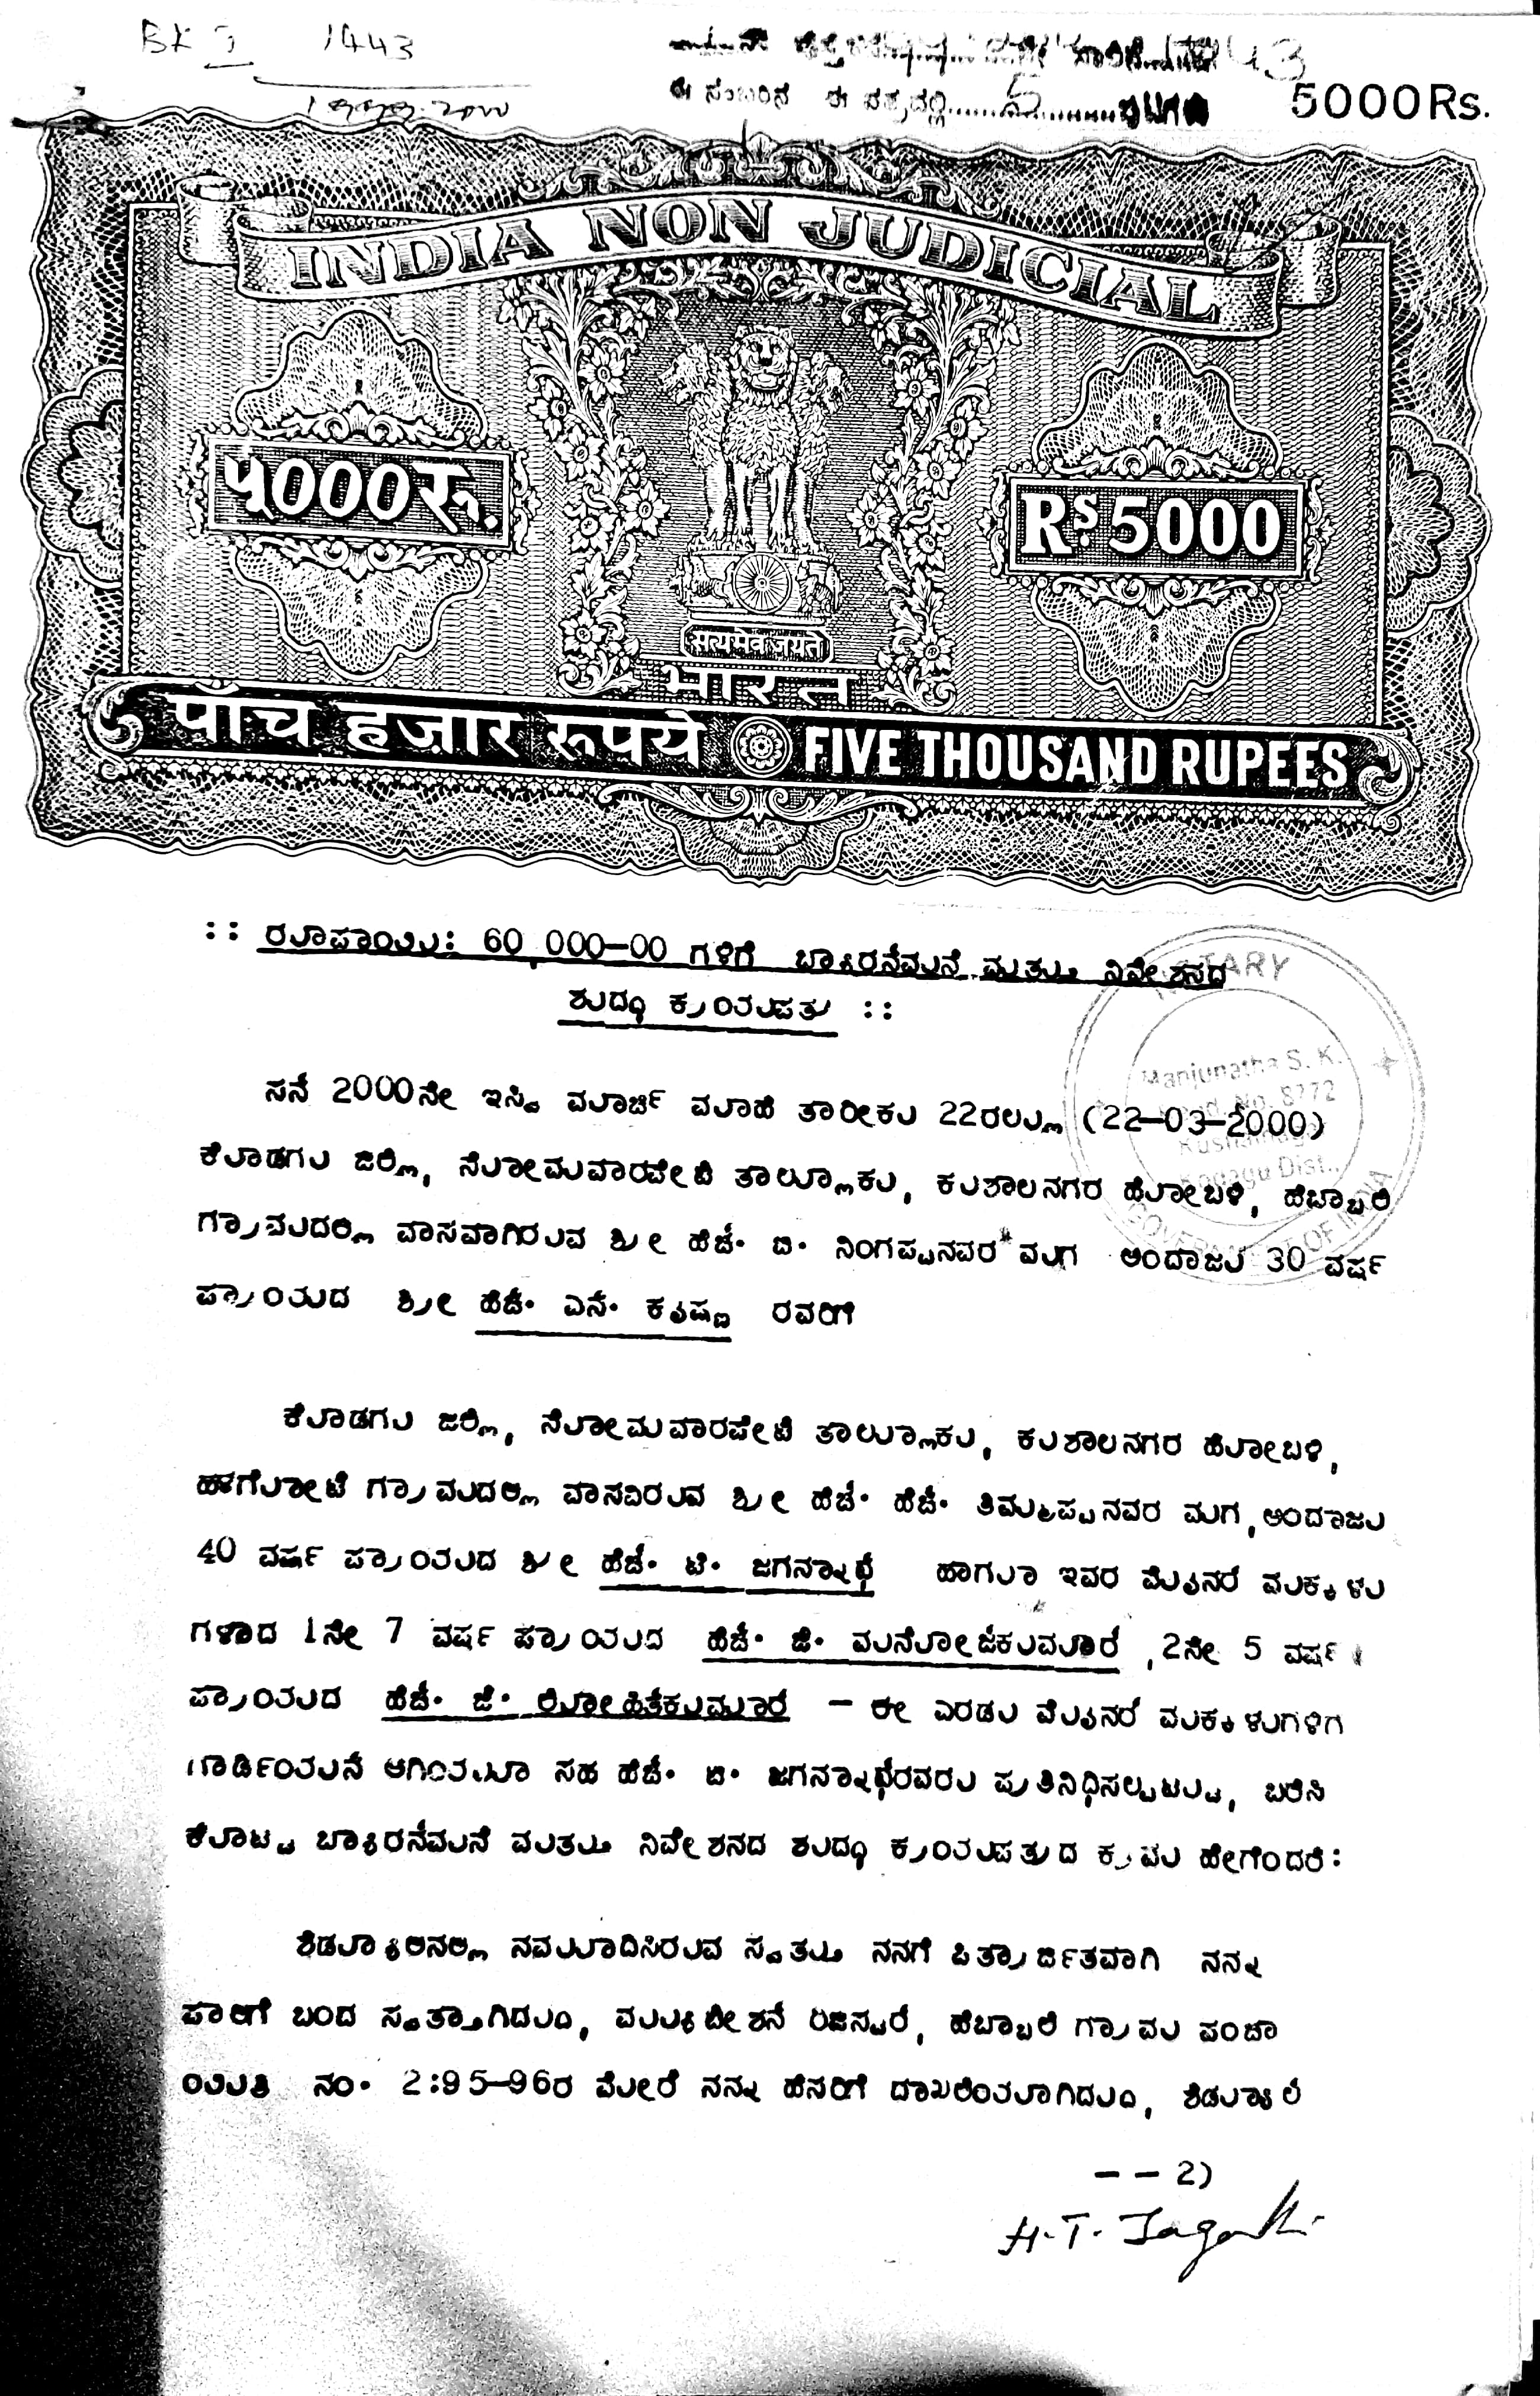 BK I 1443
43
ಈ ಸಂಬರಿನ ಈ ಪತ್ರದಲ್ಲಿ......5......
5000Rs.
INDIA NON JUDICIAL
५000रू.
Rs. 5000
सत्यमेव जयते
भारत
पाँच हज़ार रूपये FIVE THOUSAND RUPEES
:: ರೂಪಾಯಿ: 60,000-00 ಗಳಿಗೆ ಖಾನೇಷುಮಾರಿ ಮತ್ತು ನಿವೇಶನದ
ಶುದ್ಧ ಕ್ರಯಪತ್ರ ::
NOTARY
Manjunatha S. K.
No. 8772
Kodagu Dist.,
GOVERNMENT OF INDIA
ಸನ್ 2000ನೇ ಇಸ್ವಿ ಮಾರ್ಚಿ ಮಾಹೆ ತಾರೀಕು 22ರಲ್ಲು (22-03-2000)
ಕೊಡಗು ಜಿಲ್ಲೆ, ಸೋಮವಾರಪೇಟೆ ತಾಲ್ಲೂಕು, ಕುಶಾಲನಗರ ಹೋಬಳಿ, ಹೆಬ್ಬಾಲೆ
ಗ್ರಾಮದಲ್ಲಿ ವಾಸವಾಗಿರುವ ಶ್ರೀ ಹೆಚ್. ಬಿ. ನಿಂಗಪ್ಪನವರ ಮಗ ಅಂದಾಜು 30 ವರ್ಷ
ಪ್ರಾಯದ ಶ್ರೀ ಹೆಚ್. ಎನ್. ಕೃಷ್ಣ ರವರಿಗೆ
ಕೊಡಗು ಜಿಲ್ಲೆ, ಸೋಮವಾರಪೇಟೆ ತಾಲ್ಲೂಕು, ಕುಶಾಲನಗರ ಹೋಬಳಿ,
ಗ್ರಾಮದಲ್ಲಿ ವಾಸವಿರುವ ಶ್ರೀ ಹೆಚ್. ಹೆಚ್. ತಿಮ್ಮಪ್ಪನವರ ಮಗ, ಅಂದಾಜು
40 ವರ್ಷ ಪ್ರಾಯದ ಶ್ರೀ ಹೆಚ್. ಟಿ. ಜಗನ್ನಾಥ್ ಹಾಗೂ ಇವರ ಮೈನರ್ ಮಕ್ಕಳು
ಗಳಾದ 1ನೇ 7 ವರ್ಷ ಪ್ರಾಯದ ಹೆಚ್. ಜೆ. ಮನೋಜ್‌ಕುಮಾರ್ , 2ನೇ 5 ವರ್ಷ
ಪ್ರಾಯದ ಹೆಚ್. ಜೆ. ರೋಹಿತ್‌ಕುಮಾರ್ - ಈ ಎರಡು ಮೈನರ್ ಮಕ್ಕಳುಗಳಿಗೆ
ಗಾರ್ಡಿಯನ್ ಆಗಿಯೂ ಸಹ ಹೆಚ್. ಟಿ. ಜಗನ್ನಾಥ್‌ರವರು ಪ್ರತಿನಿಧಿಸಲ್ಪಟ್ಟು, ಬರೆಸಿ
ಕೊಟ್ಟ ಖಾನೇಷುಮಾರಿ ಮತ್ತು ನಿವೇಶನದ ಶುದ್ಧ ಕ್ರಯಪತ್ರದ ಕ್ರಮ ಹೇಗೆಂದರೆ:
ಶೆಡ್ಯೂಲಿನಲ್ಲಿ ನಮೂದಿಸಿರುವ ಸ್ವತ್ತು ನನಗೆ ಪಿತ್ರಾರ್ಜಿತವಾಗಿ ನನ್ನ
ಪಾಲಿಗೆ ಬಂದ ಸ್ವತ್ತಾಗಿದ್ದು, ಮ್ಯುಟೇಶನ್ ರಿಜಿಸ್ಟರ್, ಹೆಬ್ಬಾಲೆ ಗ್ರಾಮ ಪಂಚಾ
ಯಿತಿ ನಂ. 2:95-96ರ ಮೇರೆ ನನ್ನ ಹೆಸರಿಗೆ ದಾಖಲೆಯಾಗಿದ್ದು, ಶೆಡ್ಯೂಲ್
-- 2)
H.T. Jagan